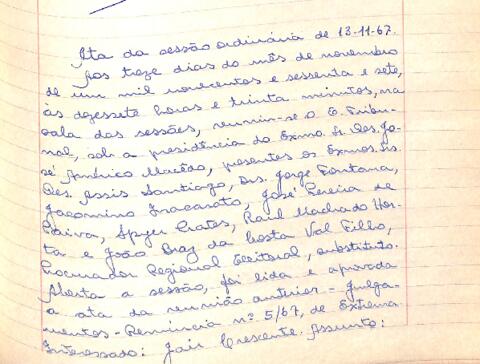 Ata da sessão ordinária de 13-11-67.
Aos treze dias do mês de novembro
de um mil novecentos e sessenta e sete,
às dezessete horas e trinta minutos, na
sala das sessões, reuniu-se o E. Tribu-
nal, sob a presidência do Exmo. Sr. Des. Jo-
sé Américo Macêdo, presentes os Exmos. Srs.
Des. Assis Santiago, Drs. Jorge Fontana,
Jacomino Inacarato, José Pereira de
Paiva, Apyer Crates, Raul Machado Hor-
ta e João Braz da Costa Val Filho,
Procurador Regional Eleitoral, substituto.
Aberta a sessão, foi lida e aprovada
a ata da reunião anterior - Julga-
mentos - Renúncia nº 5/67, de Extrema
Interessado: Jair Crescente. Assunto: